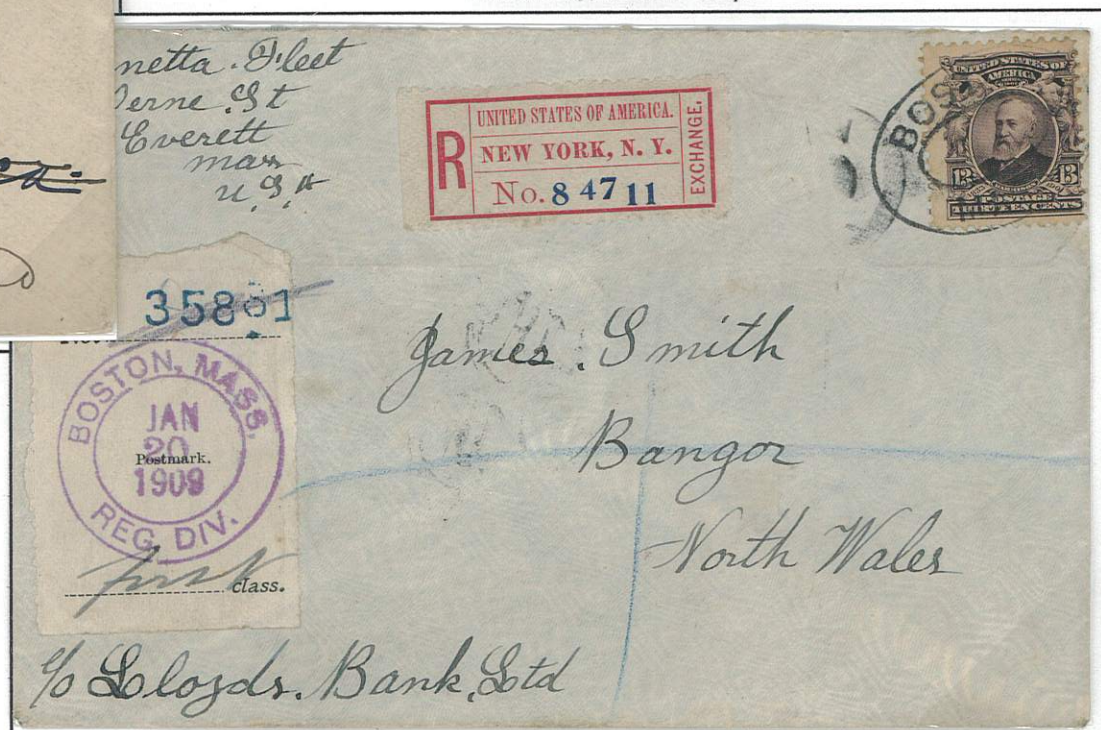 netta. Fleet
Verne. St
Everett
Mass
U. S. A
UNITED STATES OF AMERICA.
R
NEW YORK, N. Y.
No. 8 47 11
EXCHANGE.
UNITED STATES OF
AMERICA
13 13
THIRTEEN CENTS
BOS
35801
BOSTON, MASS.
JAN
20
Postmark.
1909
REG. DIV.
first class.
James. Smith
Bangor
North Wales
c/o Lloyds. Bank, Ltd